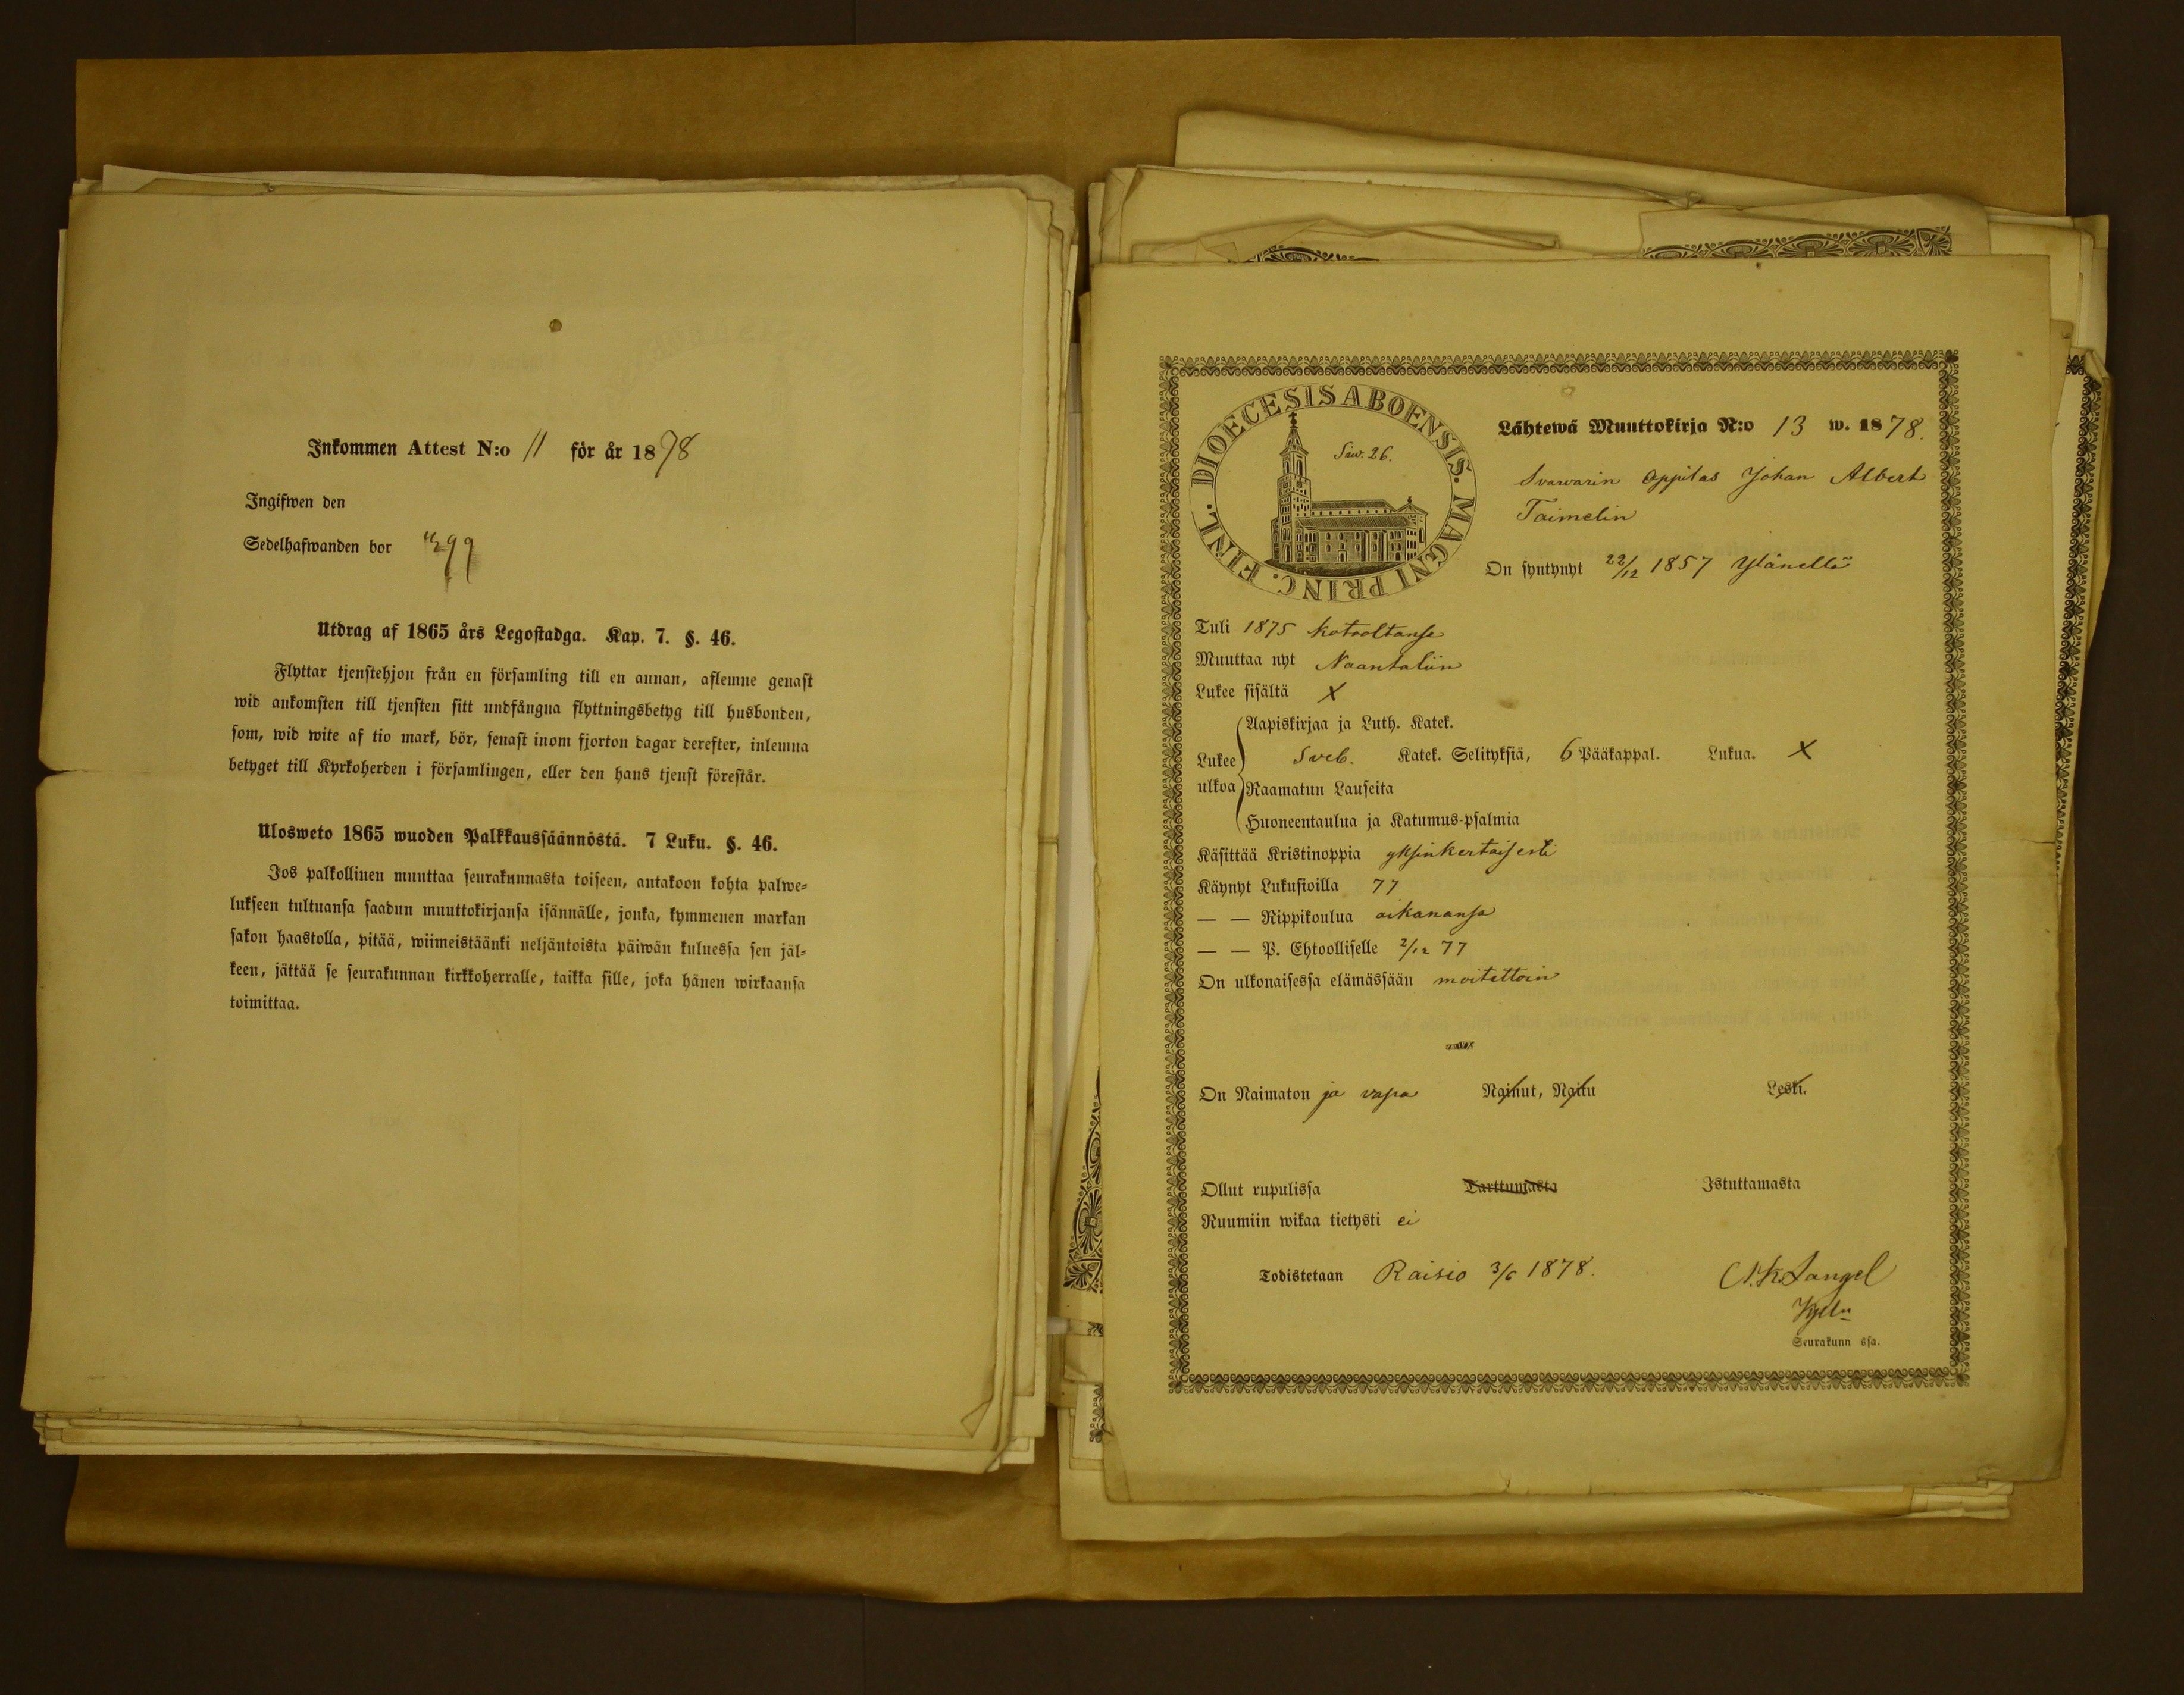 Inkommen Attest N:o 11 för år 1878
Ingifwen den
Sedelhafwanden bor
Utdrag af 1865 års Legostadga. Kap. 7. §. 46.
Flyttar tjenstehjon från en församling till en annan, aflemne genast
wid ankomsten till tjensten sitt undfångna flyttningsbetyg till husbonden,
som, wid wite af tio mark, bör, senast inom fjorton dagar derefter, inlemna
betyget till Kyrkoherden i församlingen, eller den hans tjenst förestår.
Ulosweto 1865 wuoden Palkkaussäännöstä. 7 Luku. §. 46.
Jos palkollinen muuttaa seurakunnasta toiseen, antakoon kohta palwe-
lukseen tultuansa saadun muuttokirjansa isännälle, jonka, kymmenen markan
sakon haastolla, pitää, wiimeistäänki neljäntoista päiwän kuluessa sen jäl-
keen, jättää se seurakunnan kirkkoherralle, taikka sille, joka hänen wirkaansa
toimittaa.
DIOECESIS ABOENSIS. MAGNI PRINC. FINL.
Siw. 26.
Lähtewä Muuttokirja N:o 13 w. 1878.
Svarvarin oppilas Johan Albert
Taimelin
On syntynyt 22/12 1857 Ylänellä
Tuli 1875 kotvoltansa
Muuttaa nyt Naantaliin
Lukee sisältä X
Lukee ulkoa
Aapiskirjaa ja Luth. Katek.
Sveb. Katek. Selityksiä, 6 Pääkappal. Lukua. X
Raamatun Lauseita
Huoneentaulua ja Katumus-psalmia
Käsittää Kristinoppia yksinkertaisesti
Käynyt Lukusioilla 77
— — Rippikoulua aikanansa
— — P. Ehtoolliselle 2/12 77
On ulkonaisessa elämässään moitettoin
On Naimaton ja vapa Nainut, Naitu Leski.
Ollut rupulissa Tarttumasta Istuttamasta
Ruumiin wikaa tietysti ei
Todistetaan Raisio 3/6 1878.
Seurakunn ssa.